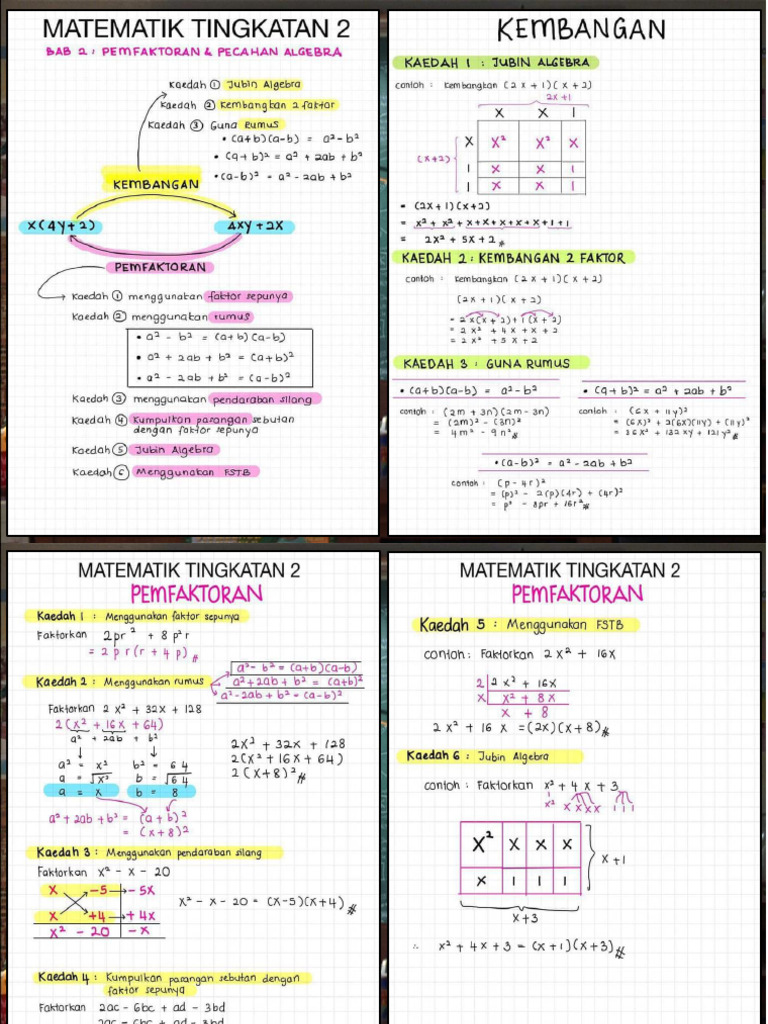 MATEMATIK TINGKATAN 2
BAB 2 : PEMFAKTORAN & PECAHAN ALGEBRA
Kaedah ① Jubin Algebra
Kaedah ② Kembangkan 2 faktor
Kaedah ③ Guna Rumus
• (a+b)(a-b) = a²-b²
• (a+b)² = a² + 2ab + b²
• (a-b)² = a² - 2ab + b²
KEMBANGAN
x(4y+2)
4xy + 2x
PEMFAKTORAN
Kaedah ① menggunakan faktor sepunya
Kaedah ② menggunakan rumus
• a² - b² = (a+b)(a-b)
• a² + 2ab + b² = (a+b)²
• a² - 2ab + b² = (a-b)²
Kaedah ③ menggunakan pendaraban silang
Kaedah ④ Kumpulkan pasangan sebutan
dengan faktor sepunya
Kaedah ⑤ Jubin Algebra
Kaedah ⑥ Menggunakan FSTB
KEMBANGAN
KAEDAH 1 : JUBIN ALGEBRA
contoh : Kembangkan (2x+1)(x+2)
2x+1
x x 1
x x² x² x
(x+2)
1 x x 1
1 x x 1
= (2x+1)(x+2)
= x² + x² + x+x+x+x+x+1+1
= 2x² + 5x + 2#
KAEDAH 2 : KEMBANGAN 2 FAKTOR
contoh : Kembangkan (2x+1)(x+2)
(2x+1)(x+2)
= 2x(x+2)+1(x+2)
= 2x² + 4x + x + 2
= 2x² + 5x + 2
KAEDAH 3 : GUNA RUMUS
• (a+b)(a-b) = a²-b²
• (a+b)² = a² + 2ab + b²
contoh : (2m + 3n)(2m - 3n)
= (2m)² - (3n)²
= 4m² - 9n²#
contoh : (6x + 11y)²
= (6x)² + 2(6x)(11y) + (11y)²
= 36x² + 132xy + 121y²#
• (a-b)² = a² - 2ab + b²
contoh : (p - 4r)²
= (p)² - 2(p)(4r) + (4r)²
= p² - 8pr + 16r²#
MATEMATIK TINGKATAN 2
PEMFAKTORAN
Kaedah 1 : Menggunakan faktor sepunya
Faktorkan 2pr² + 8p²r
= 2pr(r + 4p)#
Kaedah 2 : Menggunakan rumus
a² - b² = (a+b)(a-b)
a² + 2ab + b² = (a+b)²
a² - 2ab + b² = (a-b)²
Faktorkan 2x² + 32x + 128
2(x² + 16x + 64)
a² + 2ab + b²
a² = x² b² = 64
a = √x² b = √64
a = x b = 8
a² + 2ab + b² = (a + b)²
= (x+8)²
2x² + 32x + 128
2(x² + 16x + 64)
2(x+8)²#
Kaedah 3 : Menggunakan pendaraban silang
Faktorkan x² - x - 20
x -5 -5x
x +4 +4x
x² -20 -x
x² - x - 20 = (x-5)(x+4)#
Kaedah 4 : Kumpulkan pasangan sebutan dengan
faktor sepunya
Faktorkan 2ac - 6bc + ad - 3bd
2ac - 6bc + ad - 3bd
MATEMATIK TINGKATAN 2
PEMFAKTORAN
Kaedah 5 : Menggunakan FSTB
contoh : Faktorkan 2x² + 16x
2 2x² + 16x
x x² + 8x
x + 8
2x² + 16x = (2x)(x+8)#
Kaedah 6 : Jubin Algebra
contoh : Faktorkan x² + 4x + 3
x² x x x x 1 1 1
x² x x x
x 1 1 1
x+1
x+3
∴ x² + 4x + 3 = (x+1)(x+3)#